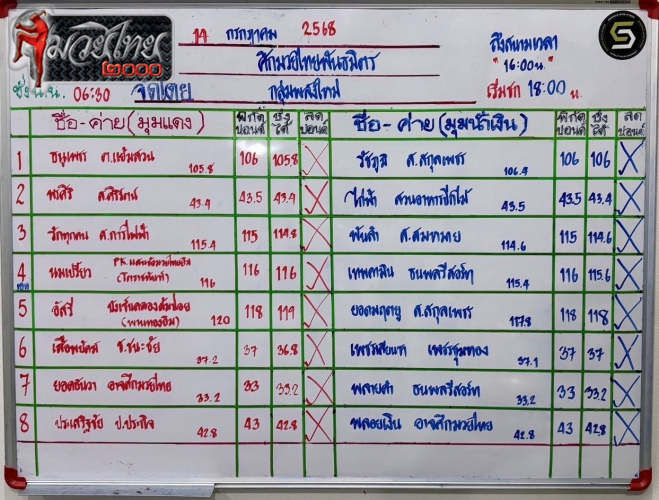 มวยไทย
2000
14 กรกฎาคม 2568
ศึกมวยไทยพันธมิตร
ถึงสนามเวลา
"16:00น."
ชั่งน.น. 06:30 จิตเตย กลุ่มพลังใหม่ เริ่มชก 18:00 น.
ชื่อ-ค่าย(มุมแดง) พิกัดปอนด์ ชั่งได้ ลดปอนด์ ชื่อ-ค่าย(มุมน้ำเงิน) พิกัดปอนด์ ชั่งได้ ลดปอนด์
1 ธนูเพชร ต.แย้มสวน 105.8 106 105.8 X รัชภูมิ ส.สกุลเพชร 106.4 106 106 X
2 พศิริ ส.ศิริรัตน์ 43.4 43.5 43.4 X ไก่ฟ้า สวนอาหารปีกไม้ 43.5 43.5 43.4 X
3 รักทุกคน ส.การไฟฟ้า 115.4 115 114.8 X พันล้ำ ส.สมหมาย 114.6 115 114.6 X
4 นมเปรี้ยว 116 116 116 X เทพทามิน ธนพลรีสอร์ท 115.4 116 115.6 X
(โคราชยันฮี)
5 อัสรี 120 118 119 X ยอดมฤตยู ส.สกุลเพชร 117.8 118 118 X
(พานทองยิม)
6 เสือพยัคฆ์ ช.ชนะชัย 37.2 37 36.8 X เพชรเสียนชา เพชรชุมทอง 37.1 37 37 X
7 ยอดธันวา อาจศึกมวยไทย 33.2 33 33.2 X พลายดำ ธนพลรีสอร์ท 33.2 33 33.2 X
8 ประเสริฐชัย ป.ประกิจ 42.8 43 42.8 X พลอยเงิน อาจศึกมวยไทย 42.8 43 42.8 X